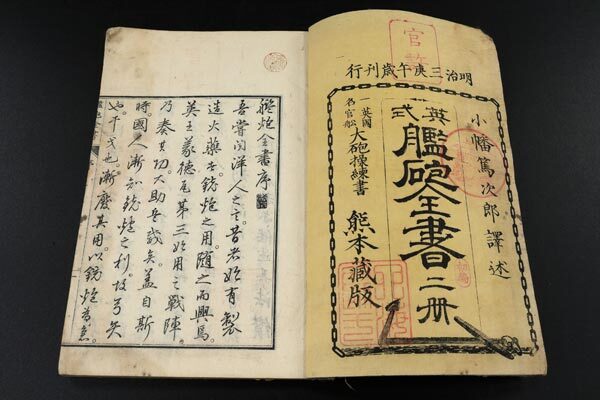 官許
明治三庚午歲刊行
小幡篤次郎譯述
英式
艦砲全書二册
一名英國官舩大砲操練書
熊本藏版
艦炮全書序
吾嘗聞洋人之言昔者始有製
造火藥銃炮之用隨之而興焉
英王義德瓦第三始用之戰陣
乃奏其功大助兵威矣蓋自斯
時國人漸知銃炮之利故弓矢
也干戈也漸廢其用以銃炮為急